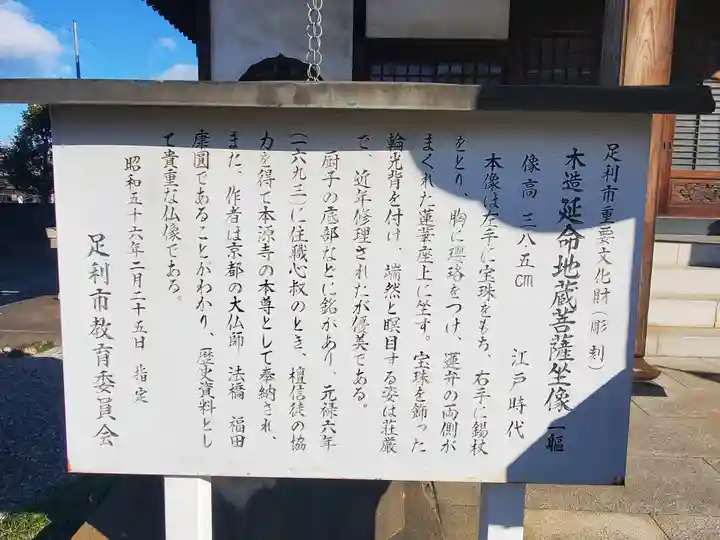 足利市重要文化財（彫刻）
木造延命地蔵菩薩坐像 一躯
像高 三八五cm 江戸時代
本像は左手に宝珠をもち、右手に錫杖
をとり、胸に瓔珞をつけ、蓮弁の両側が
まくれた蓮華座上に坐す。宝珠を飾った
輪光背を付け、端然と瞑目する姿は荘厳
で、近年修理されたが優美である。
厨子の底部などに銘があり、元禄六年
（一六九三）に住職心叔のとき、檀信徒の協
力を得て本源寺の本尊として奉納され、
また、作者は京都の大仏師 法橋 福田
康圓であることがわかり、歴史資料とし
て貴重な仏像である。
昭和五十六年二月二十五日 指定
足利市教育委員会